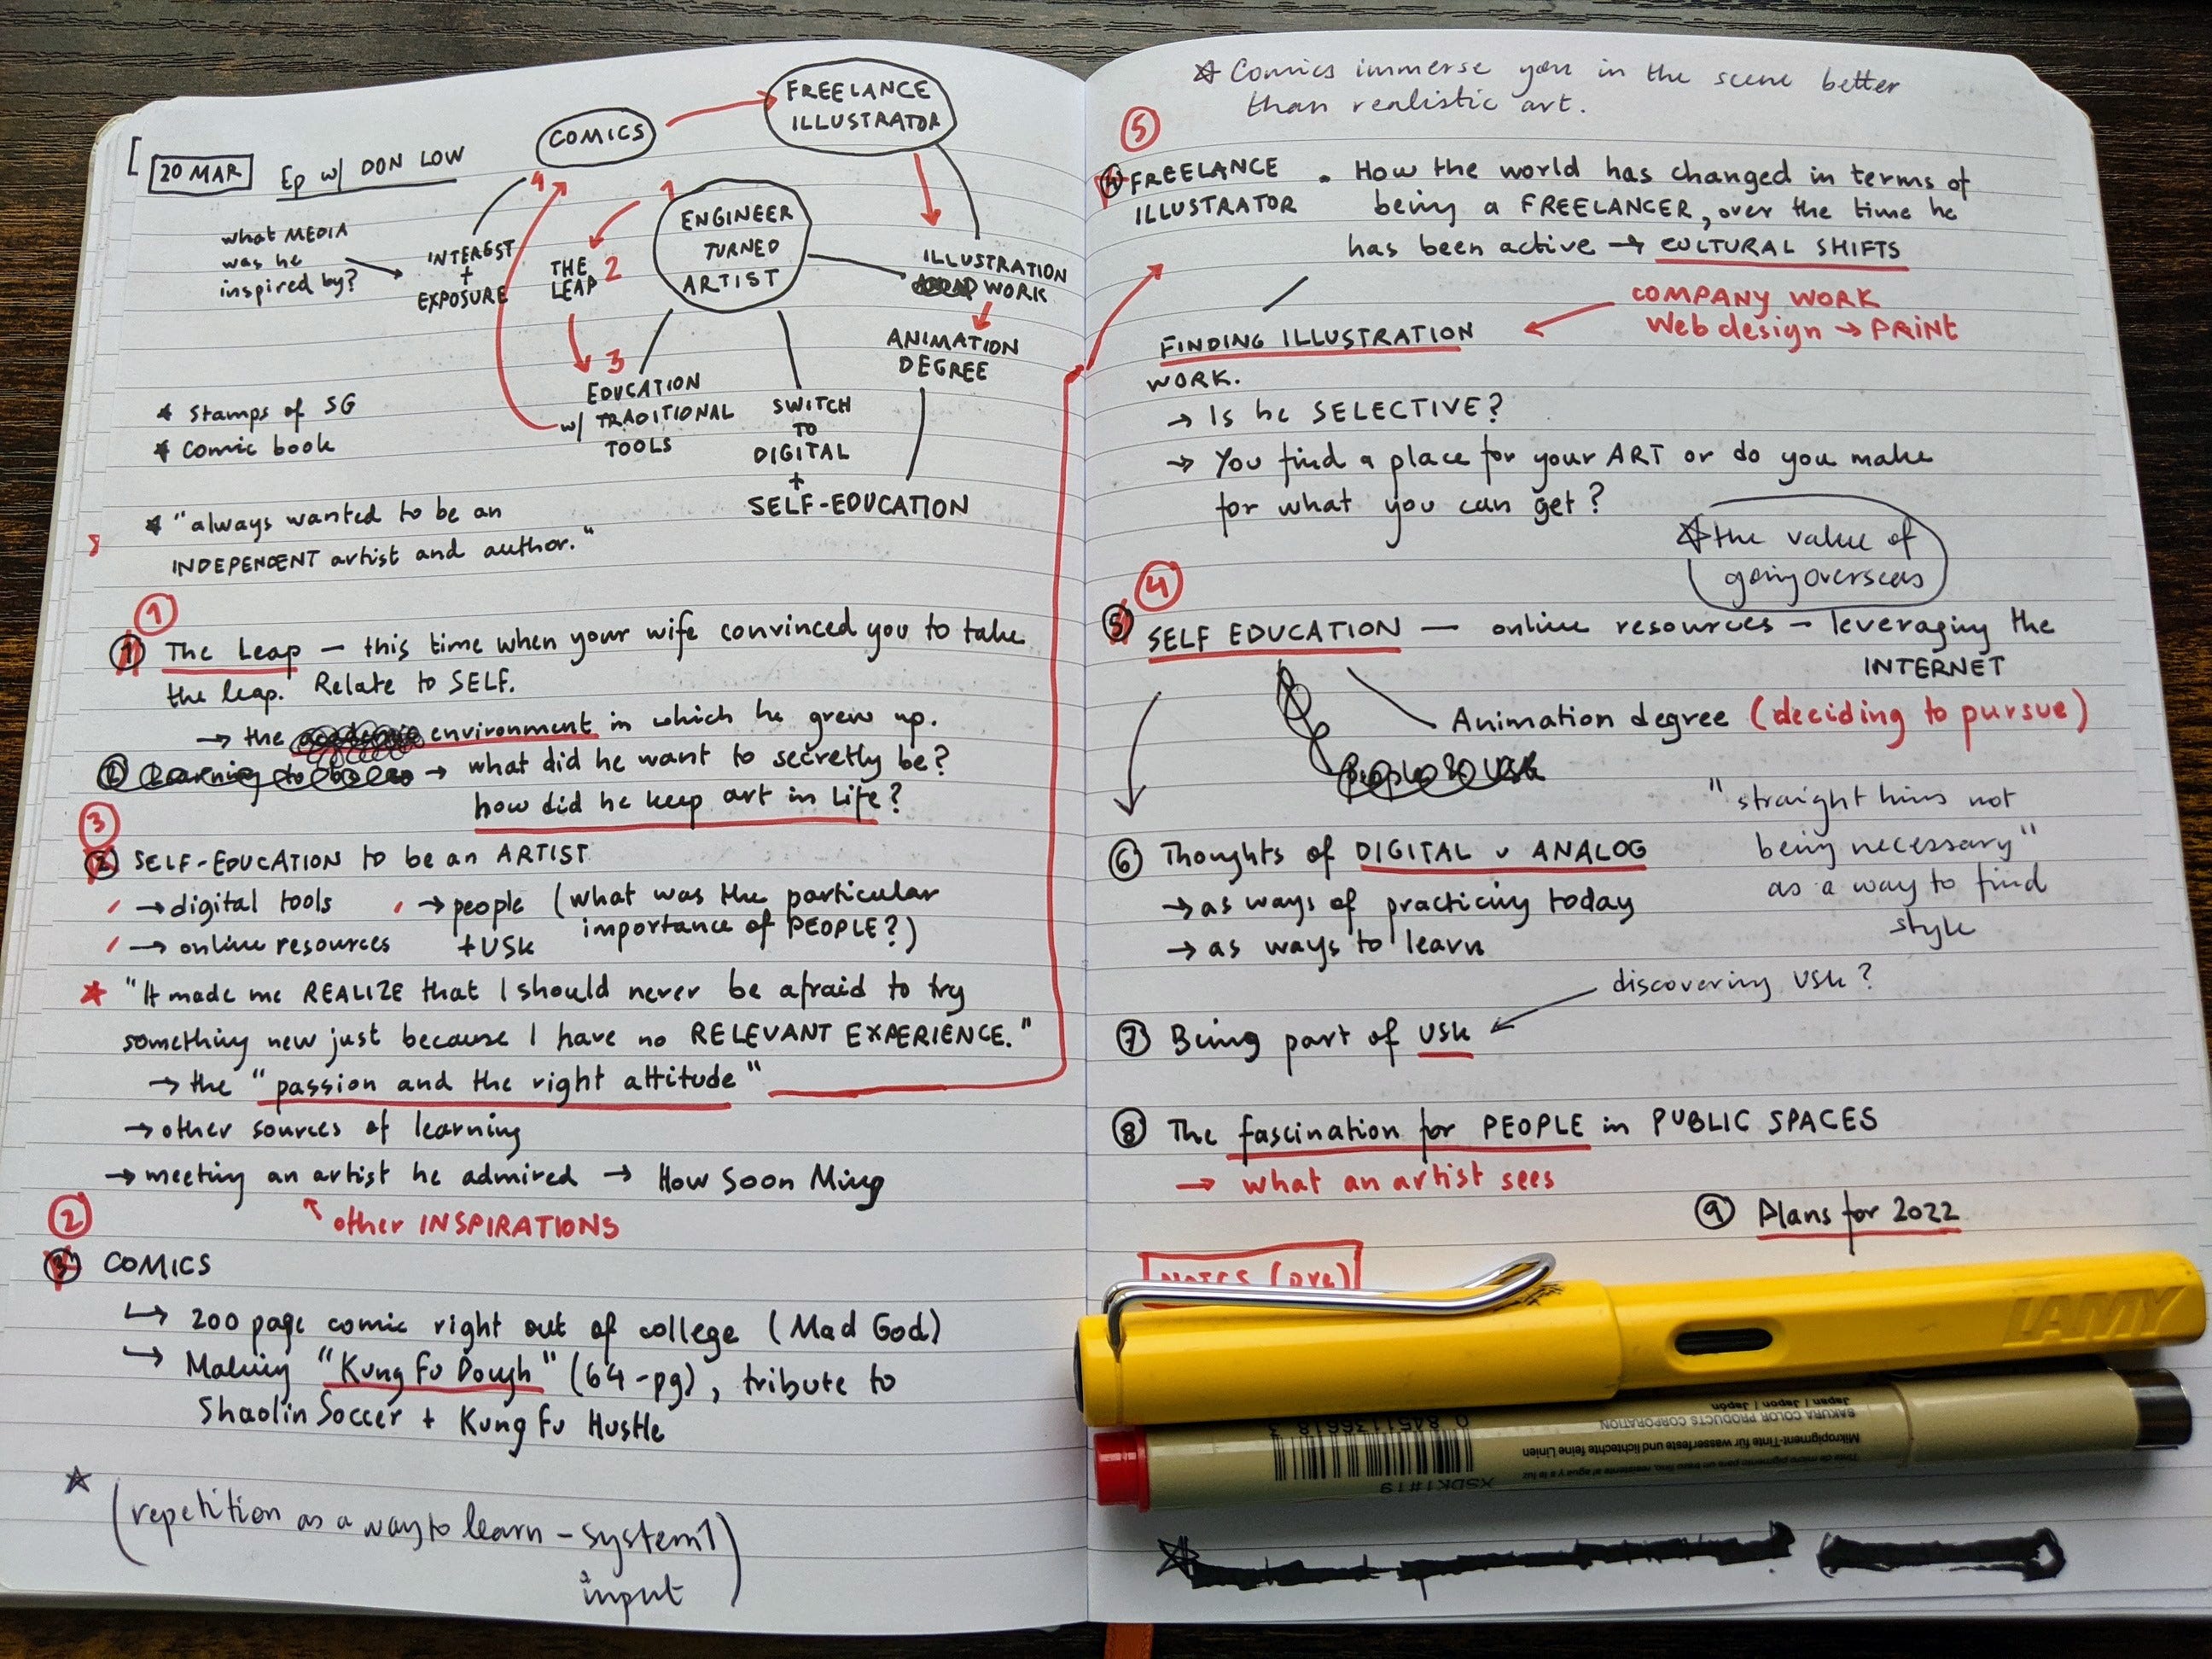 20 MAR Ep w/ DON LOW
COMICS
FREELANCE
ILLUSTRATOR
what MEDIA
was he
inspired by?
4
INTEREST
+
EXPOSURE
1
THE 2
LEAP
ENGINEER
TURNED
ARTIST
ILLUSTRATION
WORK
ANIMATION
DEGREE
3
EDUCATION
w/ TRADITIONAL
TOOLS
SWITCH
TO
DIGITAL
+
SELF-EDUCATION
* Stamps of SG
* Comic book
* "always wanted to be an
INDEPENDENT artist and author."
1
1 The Leap — this time when your wife convinced you to take
the leap. Relate to SELF.
→ the environment in which he grew up.
→ what did he want to secretly be?
how did he keep art in Life?
3
2 SELF-EDUCATION to be an ARTIST
→ digital tools → people (what was the particular
→ online resources + USk importance of PEOPLE?)
* "It made me REALIZE that I should never be afraid to try
something new just because I have no RELEVANT EXPERIENCE."
→ the "passion and the right attitude"
→ other sources of learning
→ meeting an artist he admired → How Soon Ming
2
other INSPIRATIONS
3 COMICS
↳ 200 page comic right out of college (Mad God)
↳ Making "Kung Fu Dough" (64-pg), tribute to
Shaolin Soccer + Kung Fu Hustle
☆
(repetition as a way to learn – system 1)
input
☆ Comics immerse you in the scene better
than realistic art.
5
4 FREELANCE
ILLUSTRATOR
• How the world has changed in terms of
being a FREELANCER, over the time he
has been active → CULTURAL SHIFTS
COMPANY WORK
Web design → PRINT
FINDING ILLUSTRATION
WORK.
→ Is he SELECTIVE?
→ You find a place for your ART or do you make
for what you can get?
☆ the value of
going overseas
4
5 SELF EDUCATION — online resources – leveraging the
INTERNET
Animation degree (deciding to pursue)
"straight lines not
being necessary"
as a way to find
style
6 Thoughts of DIGITAL v ANALOG
→ as ways of practicing today
→ as ways to learn
discovering USk?
7 Being part of USk
8 The fascination for PEOPLE in PUBLIC SPACES
→ what an artist sees
9 Plans for 2022
NOTES (pre)
LAMY
Japan / Japon / Japón
SAKURA COLOR PRODUCTS CORPORATION
Mikropigment-Tinte für wasserfeste und lichtechte feine Linien
XSDK1#19
0 84511 36618 3